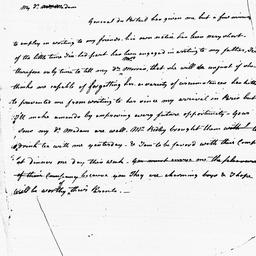 My Dr. Madam
General du Portail has given me but a few moments
to employ in writing to my friends, his own notice has been very short.
of the little time I've had part has been engaged in writing to my father, I have
therefore only time to tell my Dr. Mrs. Morris, that she will be unjust if she
thinks me capable of forgetting her. a variety of circumstances has hitherto
prevented me from writing to her since my arrival in Paris but
I'll make amends by improving every future opportunity. Your
Sons my Dr. Madam are well. Mr. Ridley brought them to
drink tea with me yesterday. & I am to be favored with their Company
at dinner one day this Week. You must envy me the pleasure
of their Company because you They are charming boys & I hope
will be worthy their Parents.